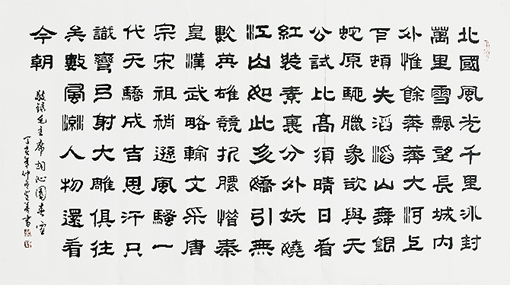 北國風光千里冰封
萬里雪飄望長城內
外惟餘莽莽大河上
下頓失滔滔山舞銀
蛇原馳臘象欲與天
公試比高須晴日看
紅裝素裹分外妖嬈
江山如此多嬌引無
數英雄競折腰惜秦
皇漢武略輸文采唐
宗宋祖稍遜風騷一
代天驕成吉思汗只
識彎弓射大雕俱往
矣數風流人物還看
今朝
敬錄毛主席詞沁園春雪